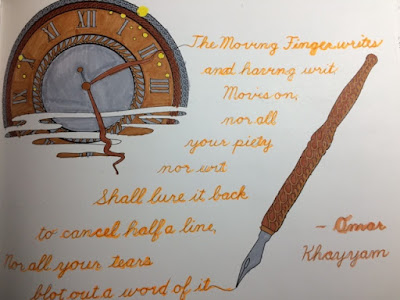 X XI XII I II III
The Moving Finger writes
and having writ
Movis on,
nor all
your piety
nor wit
Shall lure it back
to cancel half a line,
Nor all your tears
blot out a word of it
- Omar
Khayyam